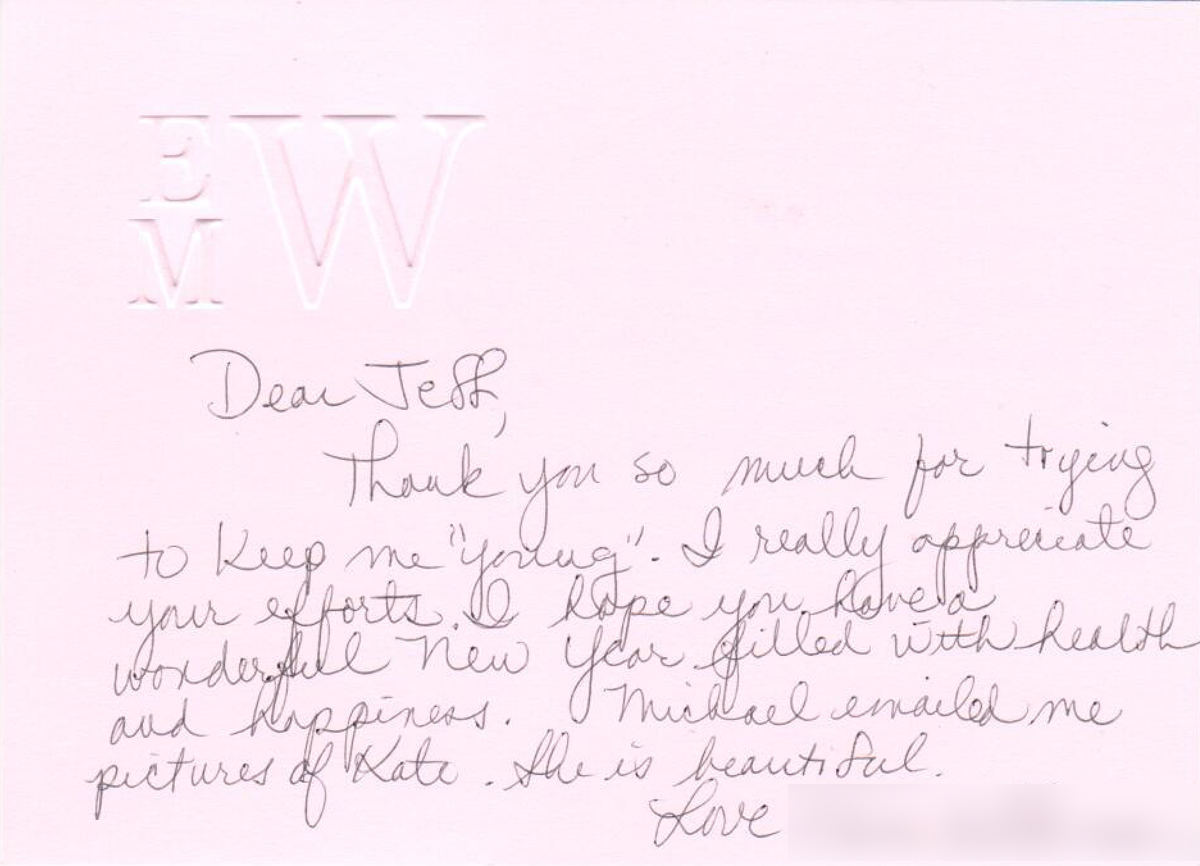 E W
M
Dear Jeff,
Thank you so much for trying
to keep me "young". I really appreciate
your efforts. I hope you have a
wonderful New Year filled with health
and happiness. Michael emailed me
pictures of Kate. She is beautiful.
Love